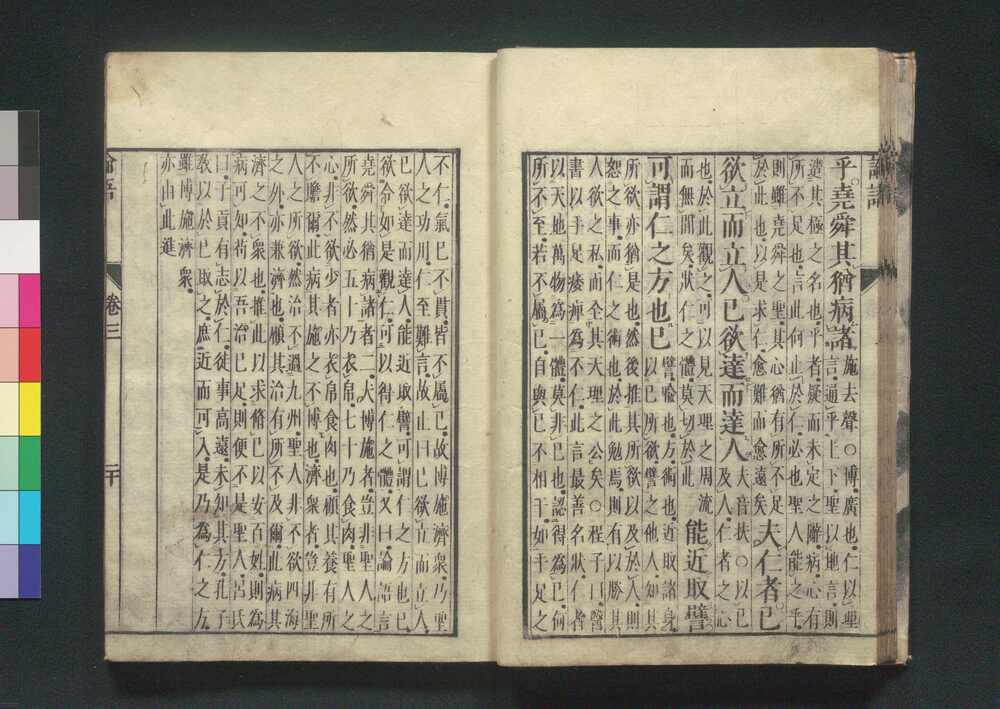 論語
乎堯舜其猶病諸施去聲○博廣也仁以理
言通乎上下聖以地言則
造其極之名也乎者疑而未定之辭病心有
所不足也言此何止於仁必也聖人能之乎
則雖堯舜之聖其心猶有所不足
於此也以是求仁愈難而愈遠矣夫仁者己
欲立而立人己欲達而達人夫音扶○以己
及人仁者之心
也於此觀之可以見天理之周流
而無閒矣狀仁之體莫切於此能近取譬
可謂仁之方也已譬喩也方術也近取諸身
以己所欲譬之他人知其
所欲亦猶是也然後推其所欲以及於人則
恕之事而仁之術也於此勉焉則有以勝其
人欲之私而全其天理之公矣○程子曰醫
書以手足痿痺為不仁此言最善名狀仁者
以天地萬物為一體莫非己也認得為己何
所不至若不屬己自與己不相干如手足之
不仁氣已不貫皆不屬己故博施濟衆乃聖
人之功用仁至難言故止曰己欲立而立人
己欲達而達人能近取譬可謂仁之方也已
欲令如是觀仁可以得仁之體又曰論語言
堯舜其猶病諸者二夫博施者豈非聖人之
所欲然必五十乃衣帛七十乃食肉聖人之
心非不欲少者亦衣帛食肉也顧其養有所
不贍爾此病其施之不博也濟衆者豈非聖
人之所欲然治不過九州聖人非不欲四海
之外亦兼濟也顧其治有所不及爾此病其
濟之不衆也推此以求脩己以安百姓則為
病可知苟以吾治已足則便不是聖人呂氏
曰子貢有志於仁徒事高遠未知其方孔子
敎以於己取之庶近而可入是乃為仁之方
雖博施濟衆
亦由此進
論語
卷三
二十